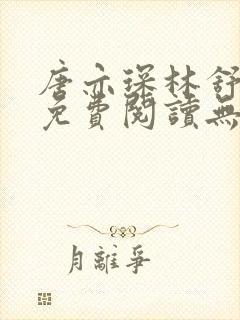 唐亦琛林舒
免費閱讀無
月離爭